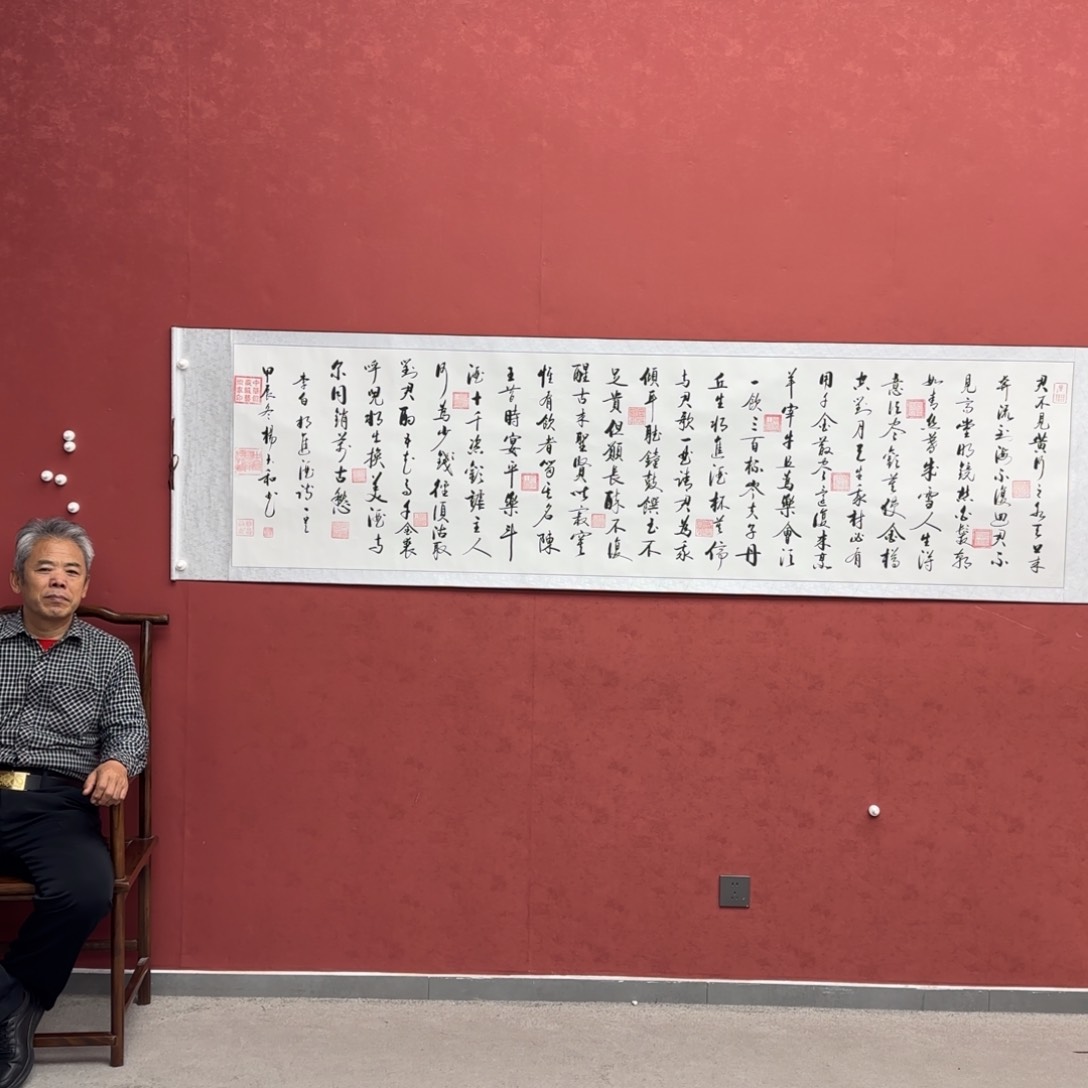 君不見黃河之水天上來
奔流到海不復迴君不
見高堂明鏡悲白髮朝
如青絲暮成雪人生得
意須盡歡莫使金樽
空對月天生我材必有
用千金散盡還復來烹
羊宰牛且為樂會須
一飲三百杯岑夫子丹
丘生將進酒杯莫停
与君歌一曲請君為我
傾耳聽鐘鼓饌玉不
足貴但願長醉不復
醒古來聖賢皆寂寞
惟有飲者留其名陳
王昔時宴平樂斗
酒十千恣歡謔主人
何為少錢徑須沽取
對君酌五花馬千金裘
呼兒將出換美酒与
尔同銷萬古愁
李白將進酒詩一首
甲辰冬楊和書